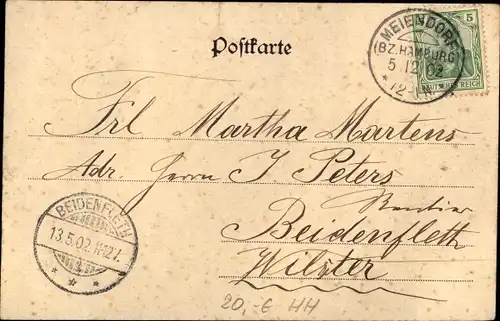 Postkarte
MEIENDORF
(BZ. HAMBURG)
5.12.02
* 12-1 N *
5
DEUTSCHES REICH
Frl Martha Martens
Adr. Herrn J Peters
Rentier
Beidenfleth
Wilster
BEIDENFLETH
13.5.02.
* * *
20,-€ HH